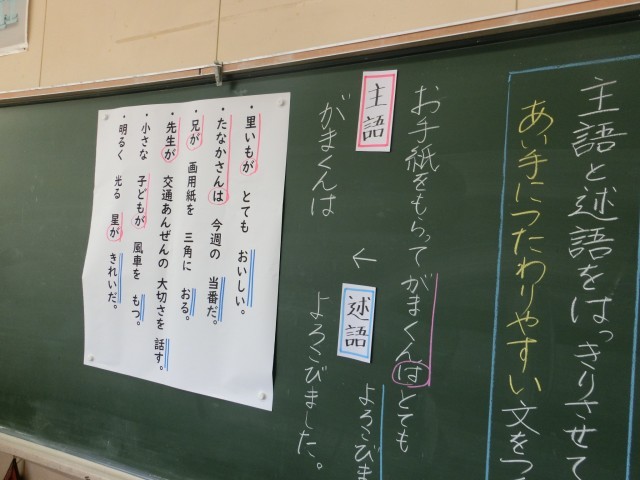 主語と述語をはっきりさせて
あい手につたわりやすい文をつ
お手紙をもらってがまくんはとても
よろこびま
主語
がまくんは
↓
述語
よろこびました。
・里いもが とても おいしい。
・たなかさんは 今週の 当番だ。
・兄が 画用紙を 三角に おる。
・先生が 交通あんぜんの 大切さを 話す。
・小さな 子どもが 風車を もつ。
・明るく 光る 星が きれいだ。